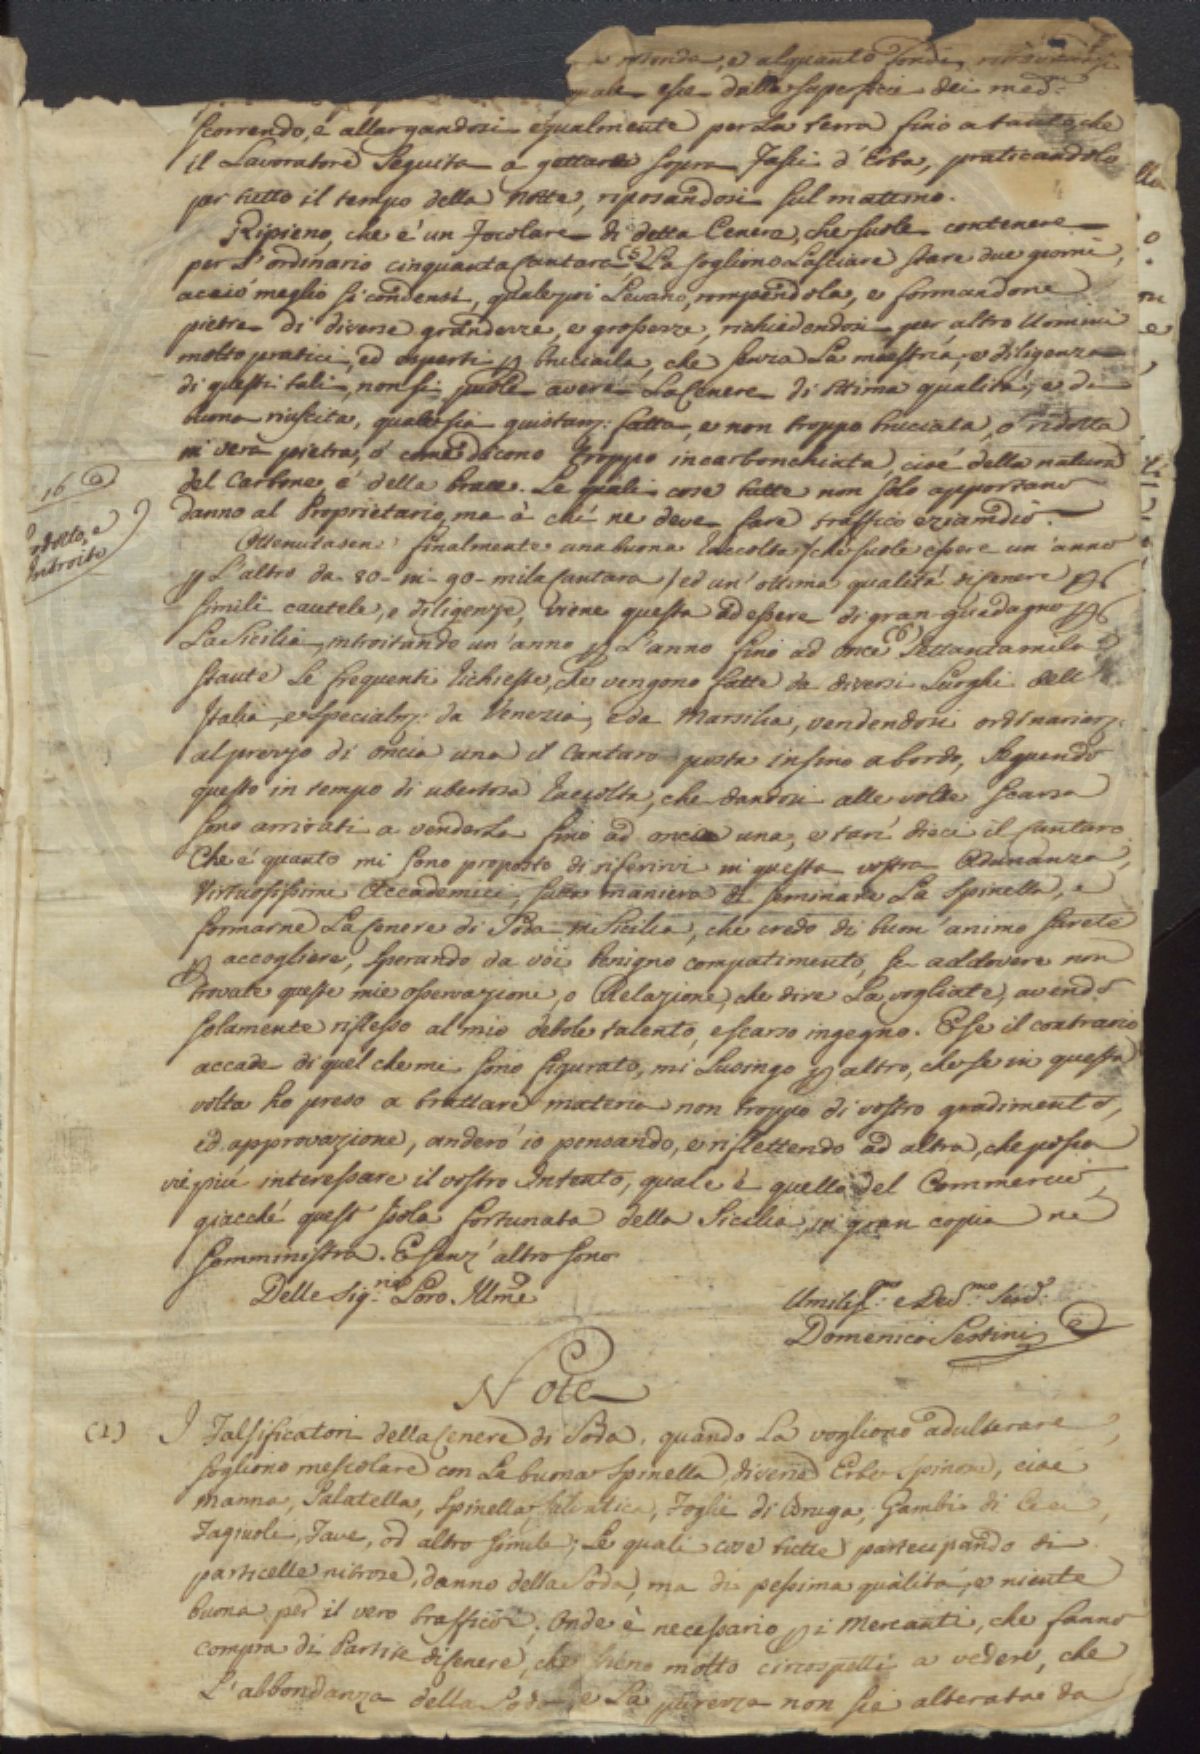 rotonda, e alquanto fonda,
quale esce dalla superficie dei med.i
scorrendo, e allargandosi egualmente per La terra fino a tanto, che
il Lavoratore Seguita a gettare sopra Fasci d'Erba, praticandolo
per tutto il tempo della Notte, riposandosi sul mattino.
Ripieno, che é un Focolare di detta Cenere, che suole contenere
per L'ordinario cinquanta Cantara (5) La sogliono Lasciare stare due giorni,
acció meglio si condensi, quale poi Levano, rompendola, e formandone
pietre di diverse grandezze, e grossezze, richiedendosi per altro Uomini
molto pratici, ed esperti p bruciarla, che senza La maestria, e diligenza
di questi tali, non si puole avere La Cenere di ottima qualitá, e di
buona riuscita, quale sia giustam: fatta, e non troppo bruciata, o ridotta
in vera pietra, ó come dicono troppo incarbonchiata, cioé della natura
del Carbone, é della brace. Le quali cose tutte non solo apportano
danno al Proprietario, ma á chi ne deve fare traffico eziandio.
16
Prodotto, e
Introito
Ottenutasene finalmente una buona Raccolta (che suole essere un'anno
p L'altro da 80 in 90 mila Cantara) ed un'ottima qualitá di Cenere p
simili cautele, e diligenze, viene questa ad essere di gran guadagno p
La Sicilia, introitando un'anno p L'anno fino ad once (6) Settantamila
staute Le frequenti richieste, che vengono fatte da diversi Luoghi dell
Italia, e specialm: da Venezia, e da Marsilia, vendendosi ordinariam:
al prezzo di oncia una il Cantaro posta infino a bordo, Seguendo
questo in tempo di ubertosa Raccolta, che dandosi alle volte scarsa
sono arrivati a venderla fino ad oncia una, e tarí dieci il Cantaro.
Che é quanto mi sono proposto di riferirvi in questa vostra Adunanza,
Virtuosissimi Accademici, sulla maniera di seminare La Spinella, e
formarne La Cenere di Soda in Sicilia, che credo di buon'animo sarete
p accogliere, sperando da voi benigno compatimento, se addovere non
trovate queste mie osservazioni, o Relazione, che dire La vogliate, avendo
solamente riflesso al mio debole talento, e scarso ingegno. E se il contrario
accade di quel che mi sono figurato, mi Lusingo p altro, che se in questa
volta ho preso a trattare materia non troppo di vostro gradimento,
ed approvazione, anderó io pensando, e riflettendo ad altra, che possa
vie piú interessare il vostro Intento, quale é quello del Commercio,
giacché quest'Isola fortunata della Sicilia in gran copia ne
somministra. E senz'altro sono
Delle Sig.rie Loro Illme
Umiliss.mo e Dev.mo Serv.
Domenico Sestini
Note
(1) I Falsificatori della Cenere di Soda, quando La vogliono adulterare,
sogliono mescolare con La buona Spinella diverse Erbe Spinose, cioé
manna, Palatella, Spinella Salvatica, Foglie di Bruga, Gambi di Ceci,
Fagiuoli, Fave, od altro simile; Le quali cose tutte partecipando di
particelle nitrose, danno della Soda, ma di pessima qualitá, e niente
buona per il vero traffico; Onde é necessario p i Mercanti, che fanno
compra di Partite di Cenere, che sieno molto circospetti a vedere, che
L'abbondanza della Soda, e La purezza non sie alterata da